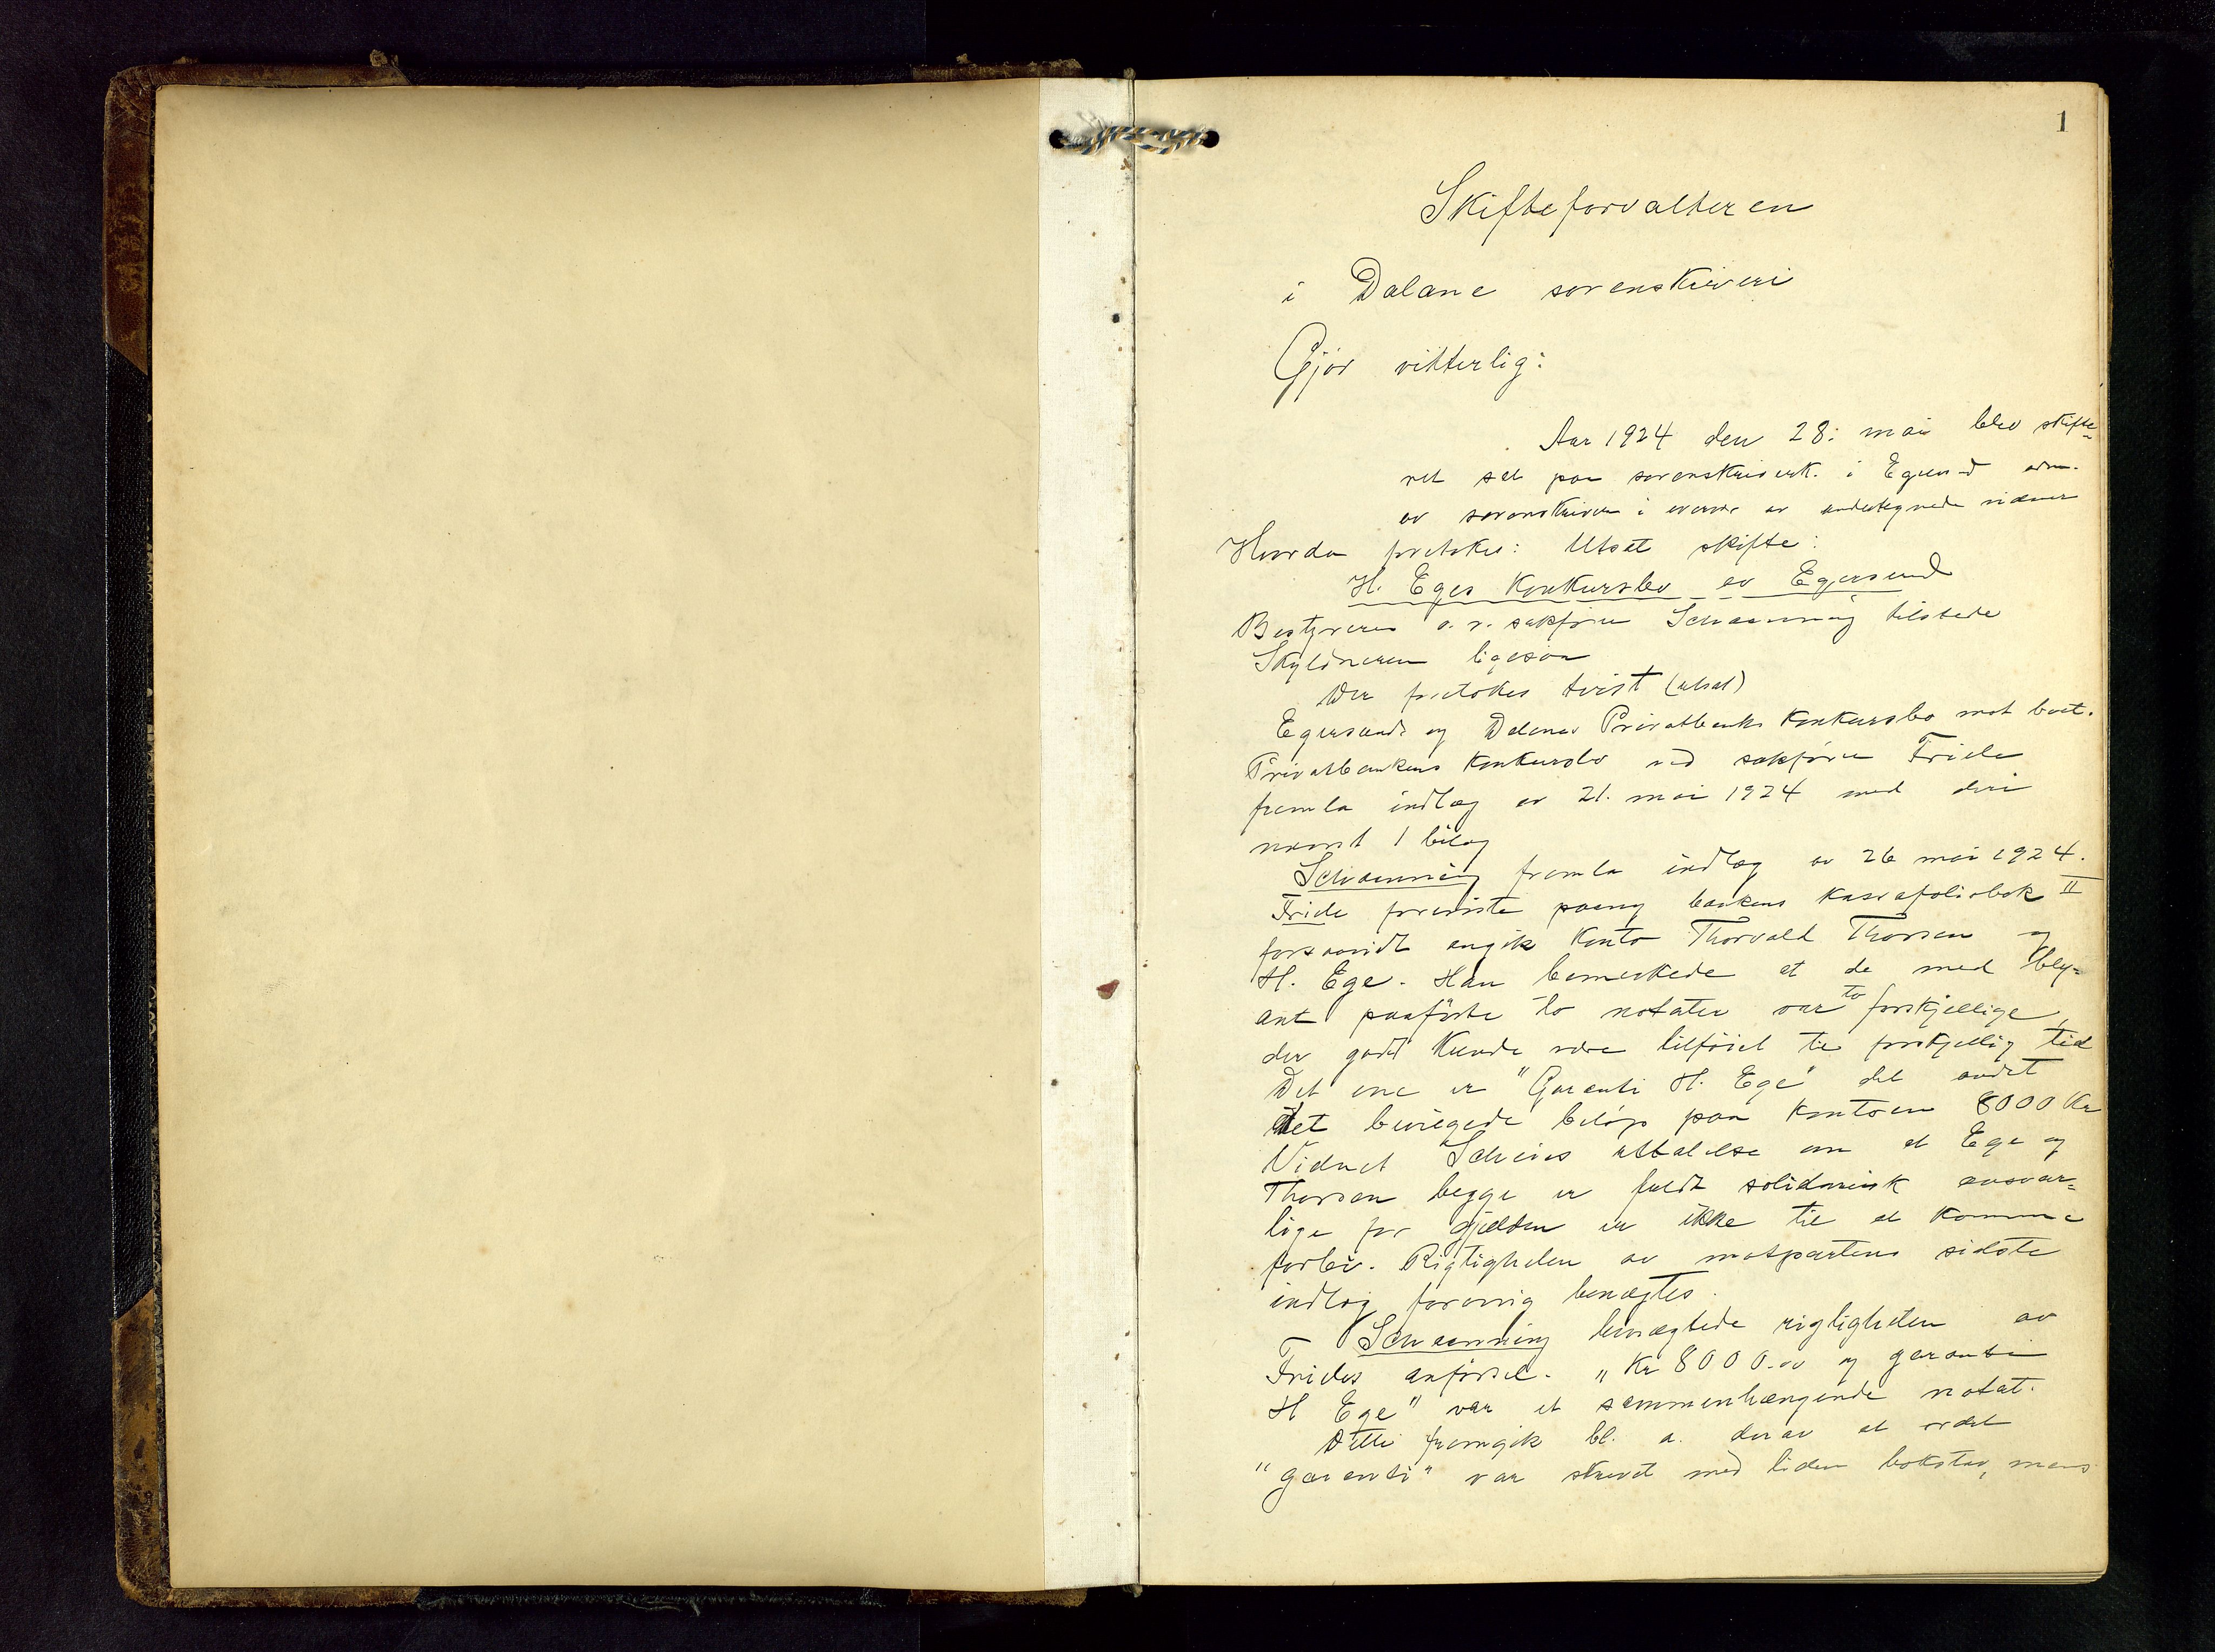 1
Skifteforvalteren
i Dalane sorenskriveri
Gjør vitterlig:
Aar 1924 den 28: mai blev skifte-
ret sat paa sorenskriverk. i Egersund adm.
av sorenskriver i nærvær av undertegnede vidner
Hvorda foretokes: Utsat skifte:
H. Eges Konkursbo av Egersund
Bestyreren o.r.sakfører Schanning tilstede
Skyldneren ligesaa
Der foretokes tvist (utsat)
Egersunds og Dalenes Privatbanks Konkursbo mot boet.
Privatbankens Konkursbo ved sakfører Friele
fremla indlæg av 21. mai 1924 med deri
nævnt 1 bilag
Schanning fremla indlæg av 26 mai 1924.
Friele foreviste paany bankens Kassafoliobok II
forsaavidt angik Konto Thorvald Thorsen og
H. Ege. Han bemerkede at de med bly-
ant paaførte to notater var to forskjellige,
der godt Kunde være tilføiet til forskjellig tid
Det ene er "Garanti H. Ege" det andet
det bevilgede beløp paa Kontoen 8000 Kr
Vidnet uttalelse om at Ege og
Thorsen begge er fuldt solidarisk ansvar-
lige for gjælden er ikke til at Komme
forbi. Rigtigheten av motpartens sidste
indlæg forøvrig benægtes.
Schanning benægtede rigtigheten av
Frieles anførsel. "Kr 8000.00 og garanti
H Ege" var et sammenhængende notat.
Dette fremgik bl. a. derav at ordet
"garanti" var skrevet med liden bokstav, mens